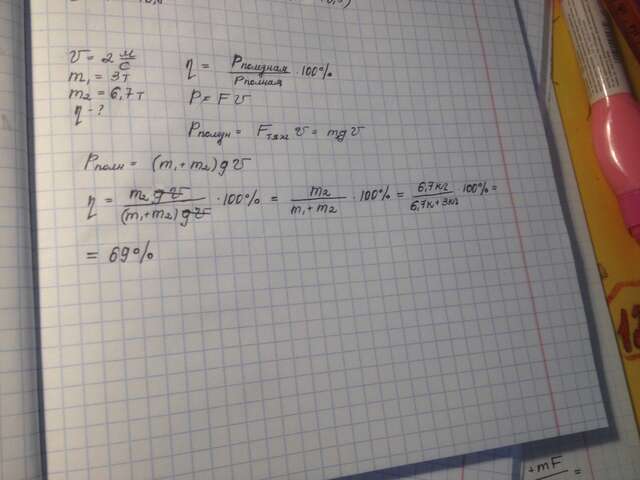 υ = 2 м/с
m₁ = 3т
m₂ = 6,7т
η - ?
η = Pполузнам / Pполнам · 100%
P = Fυ
Pполузн = Fтяж υ = mgυ
Pполн = (m₁ + m₂)gυ
η = m₂gυ / (m₁+m₂)gυ · 100% = m₂ / m₁ + m₂ · 100% = 6,7кг / 6,7к + 3кг · 100% =
= 69%
12
+mF
=